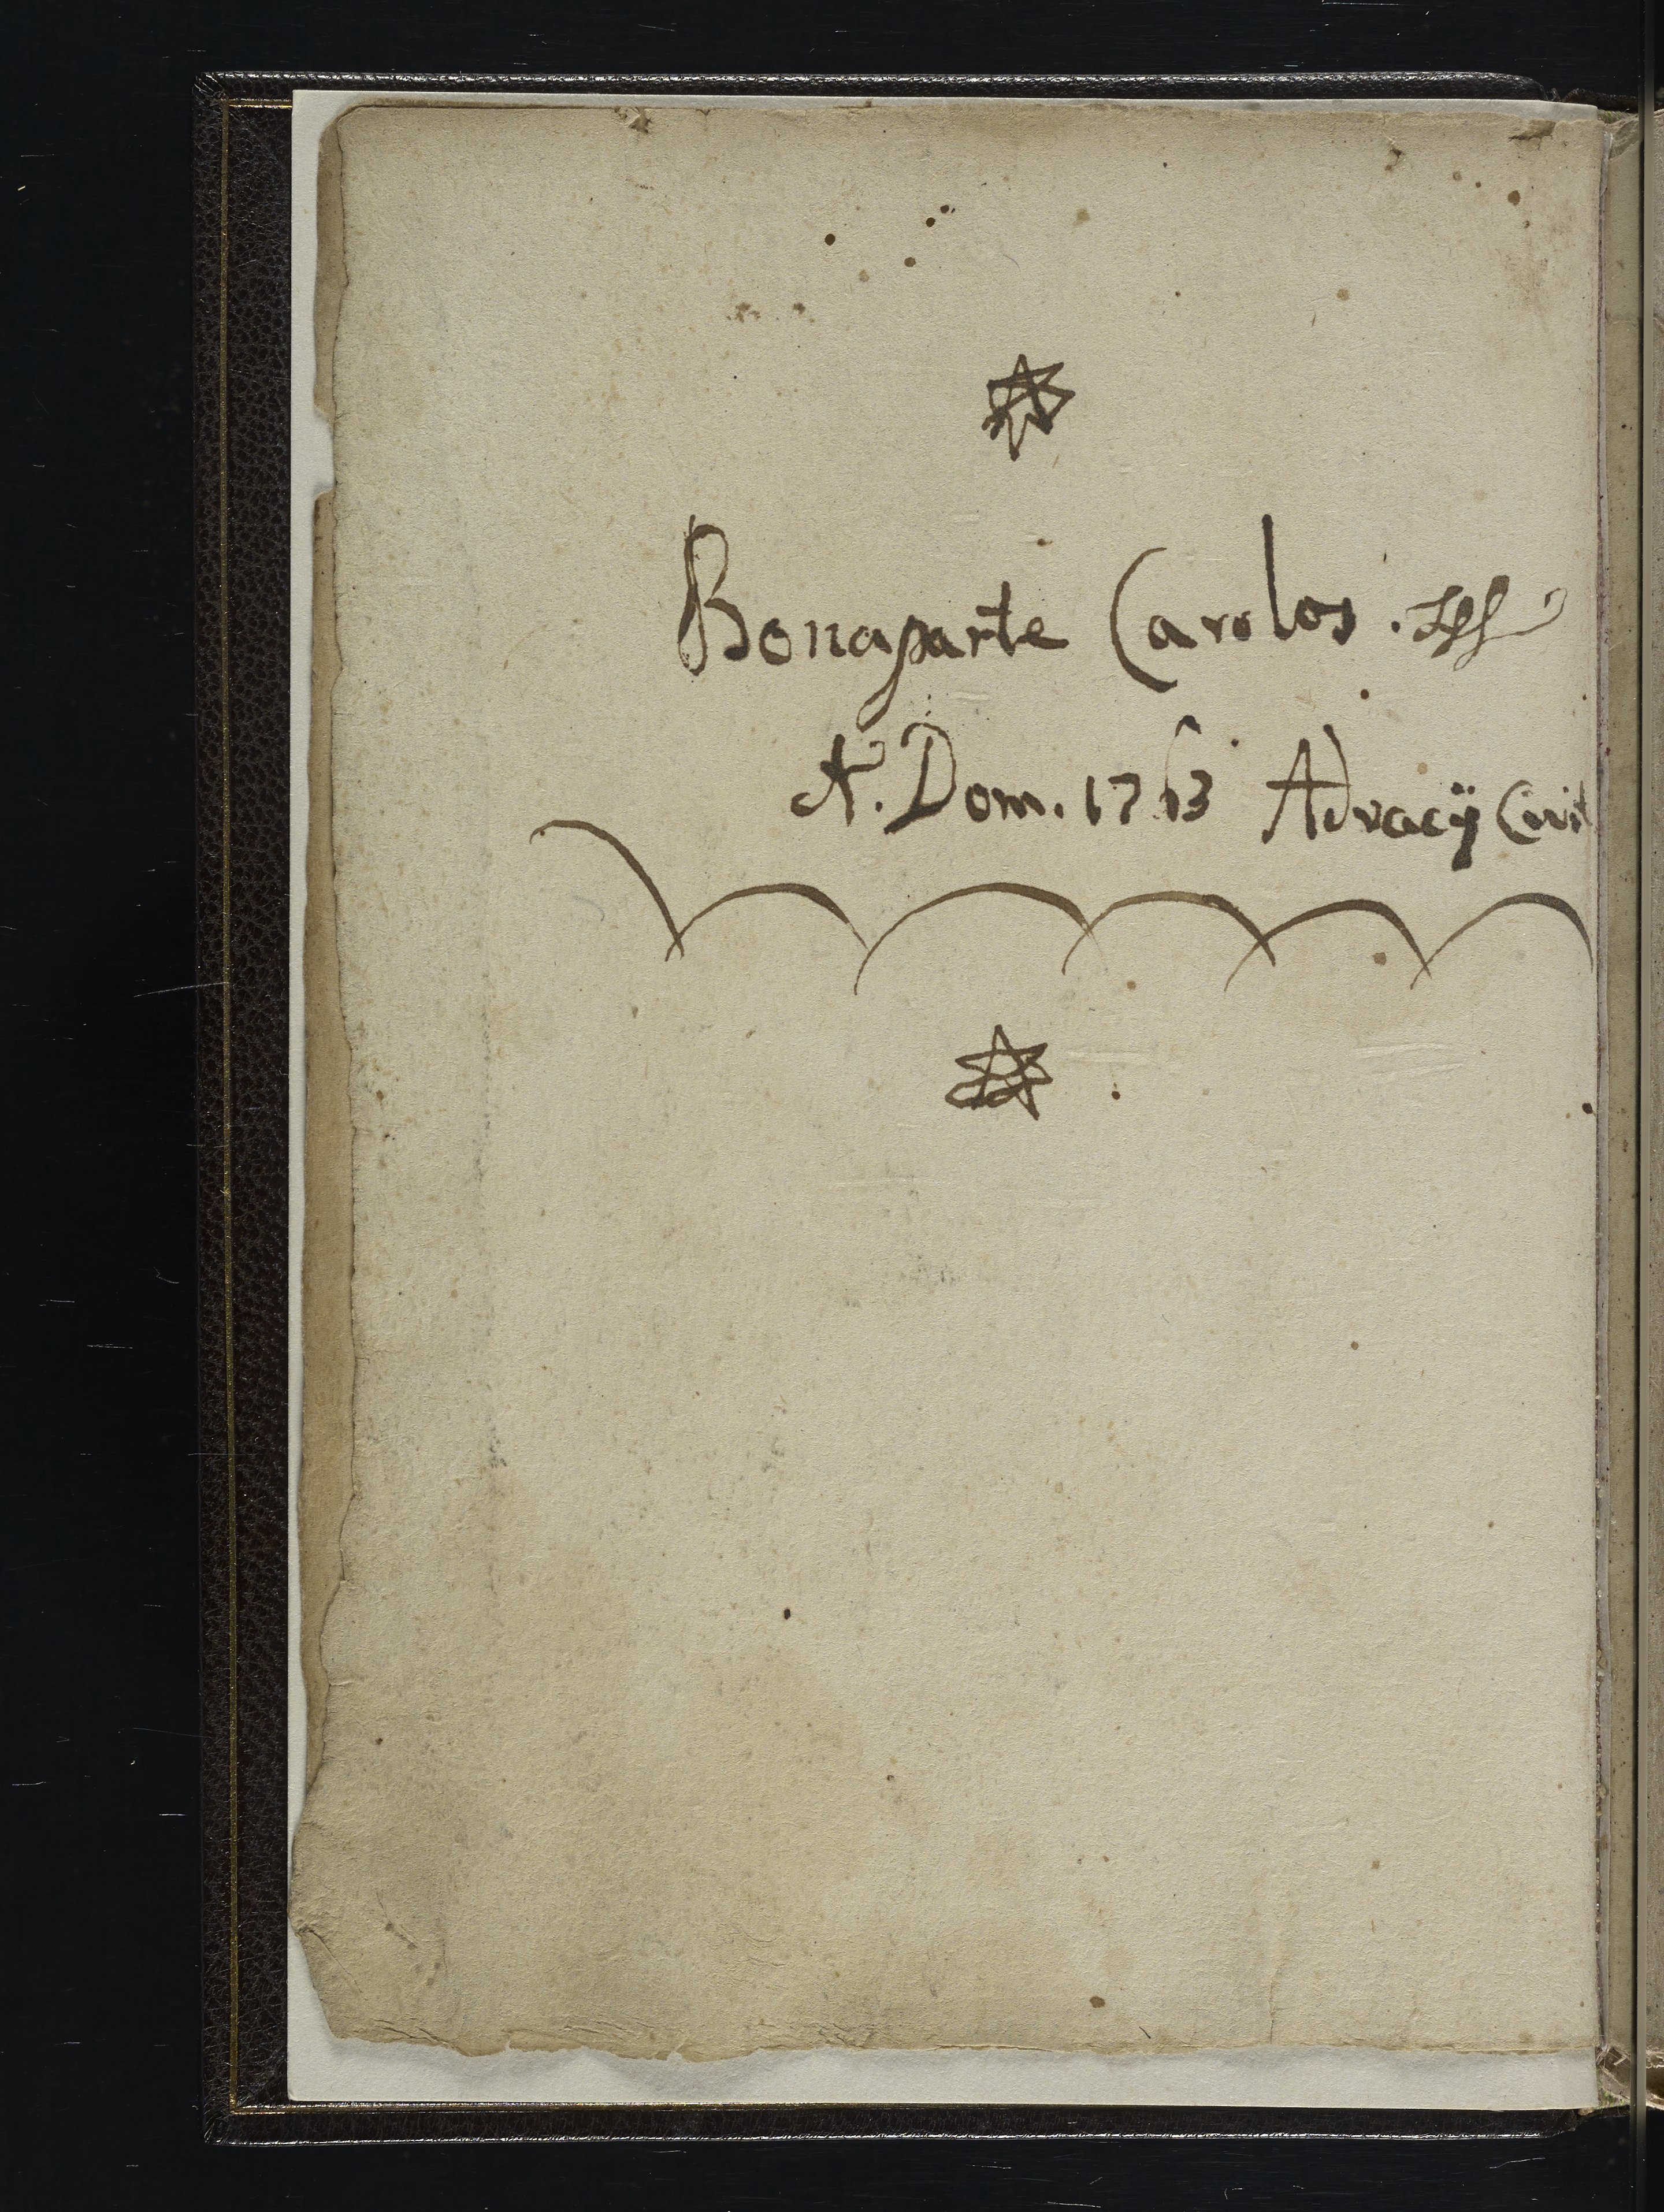 Bonaparte Carolos.
A.º Dom. 1763 Advacÿ Civit